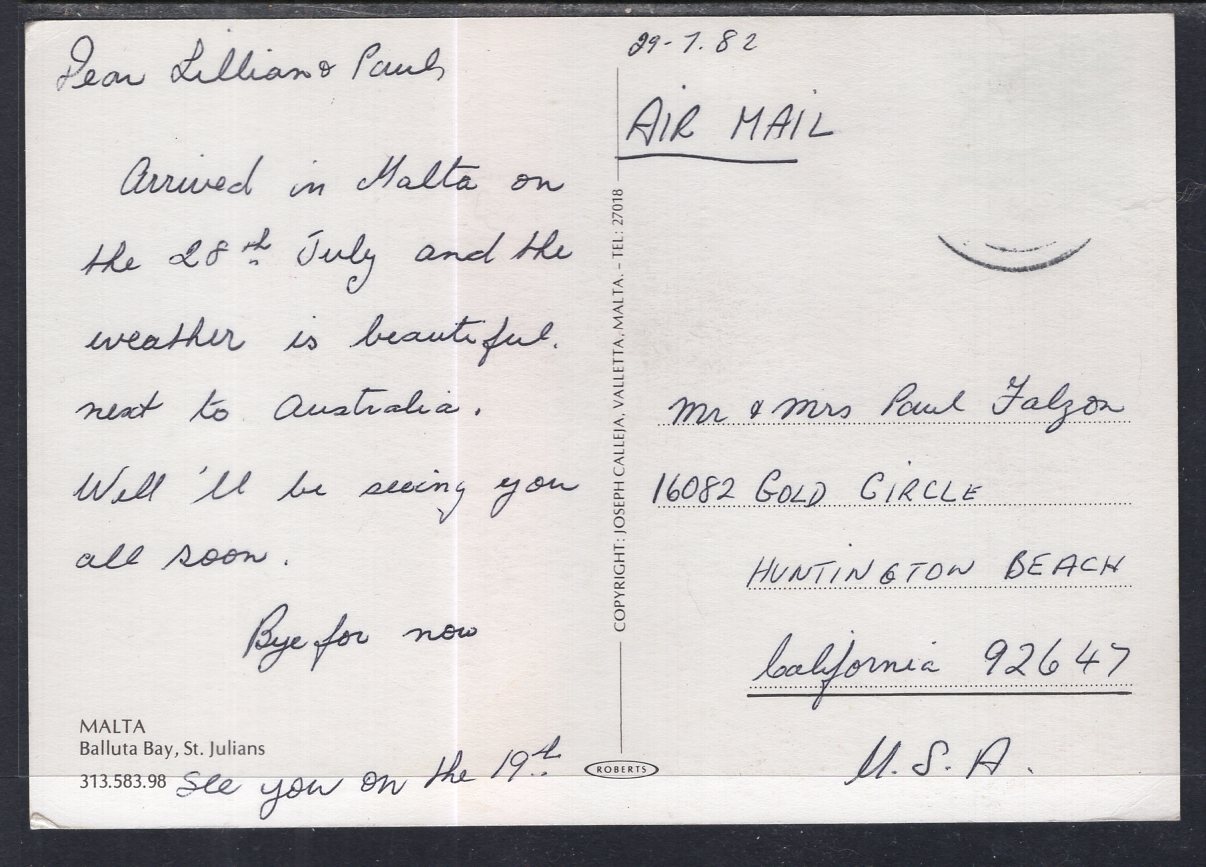 Dear Lillian & Paul,
Arrived in Malta on
the 28th July and the
weather is beautiful.
next to Australia.
Well 'll be seeing you
all soon.
Bye for now
MALTA
Balluta Bay, St. Julians
313.583.98
See you on the 19th
COPYRIGHT: JOSEPH CALLEJA, VALLETTA, MALTA. – TEL: 27018
ROBERTS
29-7.82
AIR MAIL
Mr & Mrs Paul Falzon
16082 GOLD CIRCLE
HUNTINGTON BEACH
California 92647
U.S.A.